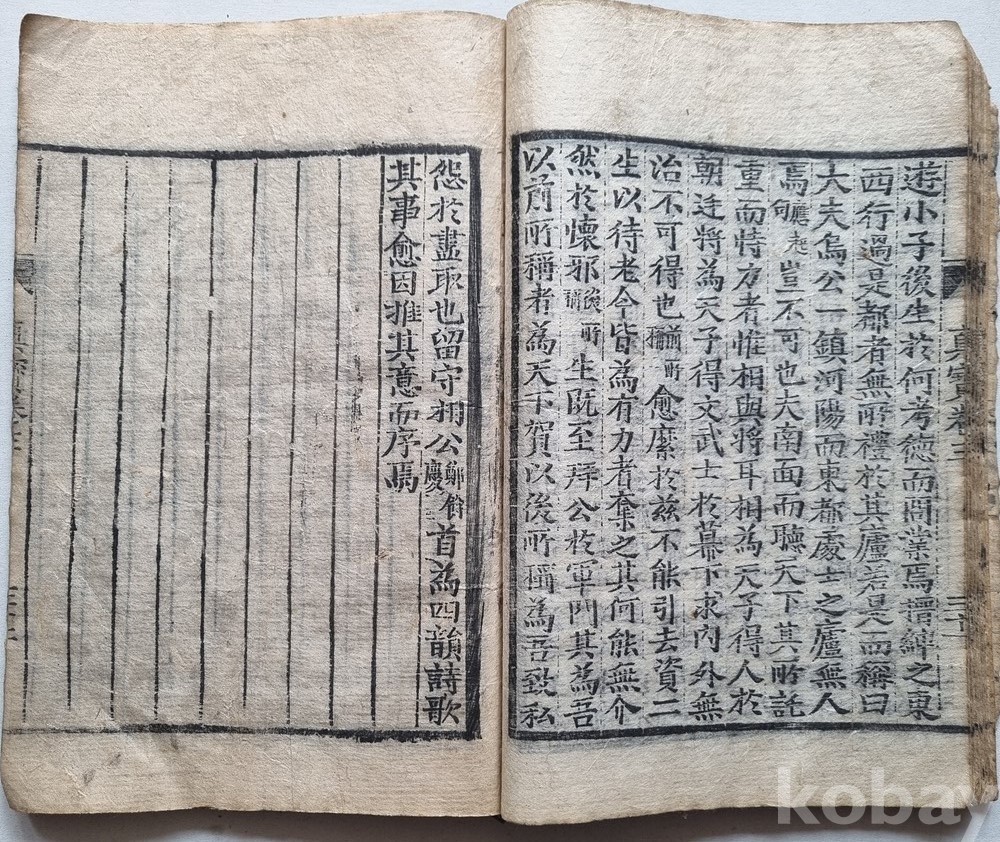 遊小子後生於何考德而問業焉搢紳之東
西行過是都者無所禮於其廬若是而稱曰
大夫烏公一鎮河陽而東都處士之廬無人
焉應起句豈不可也夫南面而聽天下其所託
重而恃力者惟相與將耳相為天子得人於
朝廷將為天子得文武士於幕下求內外無
治不可得也前所稱愈縻於茲不能引去資二
生以待老今皆為有力者奪之其何能無介
然於懷邪後所稱生旣至拜公於軍門其為吾
以前所稱者為天下賀以後所稱為吾致私
怨於盡取也留守相公鄭餘慶首為四韻詩歌
其事愈因推其意而序焉
真寶卷三
kobay